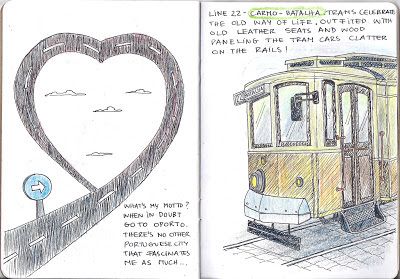 WHAT'S MY MOTTO?
WHEN IN DOUBT
GO TO OPORTO.
THERE'S NO OTHER
PORTUGUESE CITY
THAT FASCINATES
ME AS MUCH...
LINE 22 - CARMO - BATALHA. TRAMS CELEBRATE
THE OLD WAY OF LIFE, OUTFITTED WITH
OLD LEATHER SEATS AND WOOD
PANELING THE TRAM CARS CLATTER
ON THE RAILS!